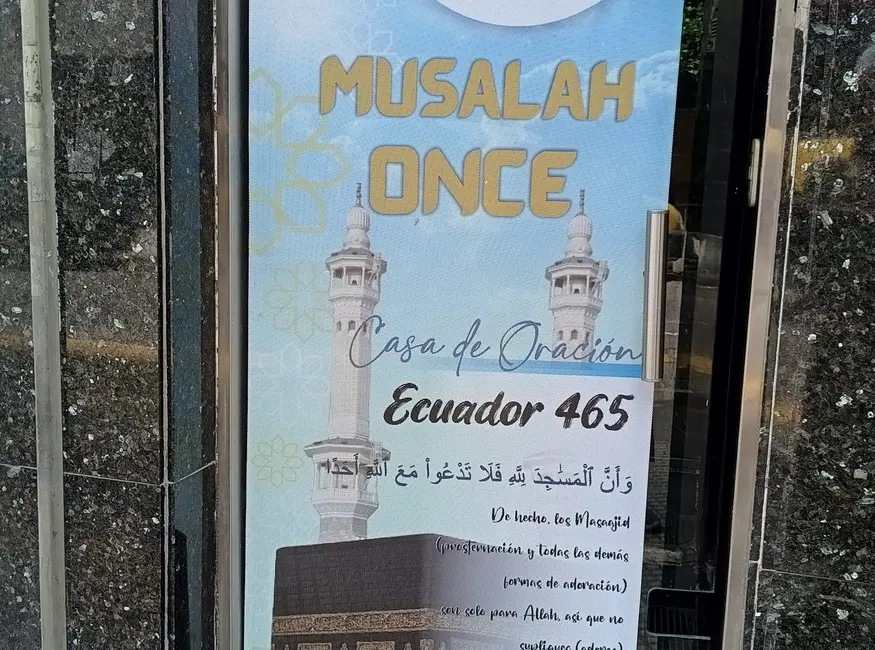 MUSALAH
ONCE
Casa de Oración
Ecuador 465
وَأَنَّ ٱلْمَسَٰجِدَ لِلَّهِ فَلَا تَدْعُوا۟ مَعَ ٱللَّهِ أَحَدًا
De hecho, los Masaajid
(prosternación y todas las demás
formas de adoración)
son solo para Allah, así que no